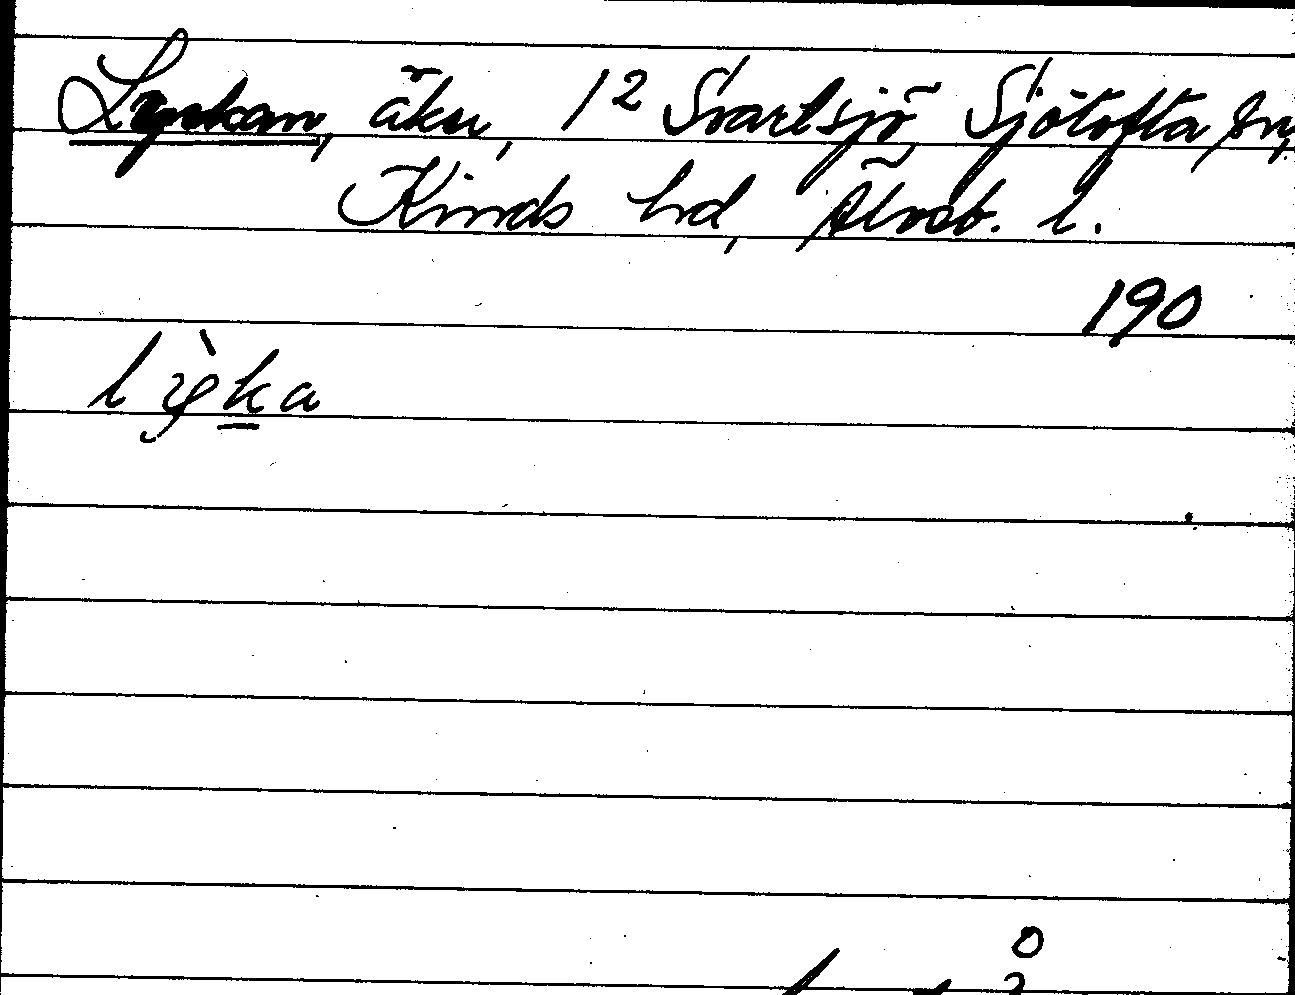 Lyckan, åker, 1² Svartsjö, Sjötofta sn,
Kinds hd, Älvsb. l.
190
lyka